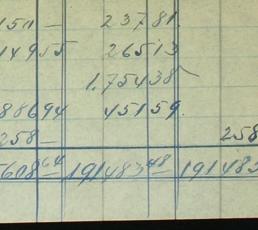 150 — 237 81.
14955 265 13
1.754 38
88694 451 59.
258 — 258
608 64 191483 48 191483